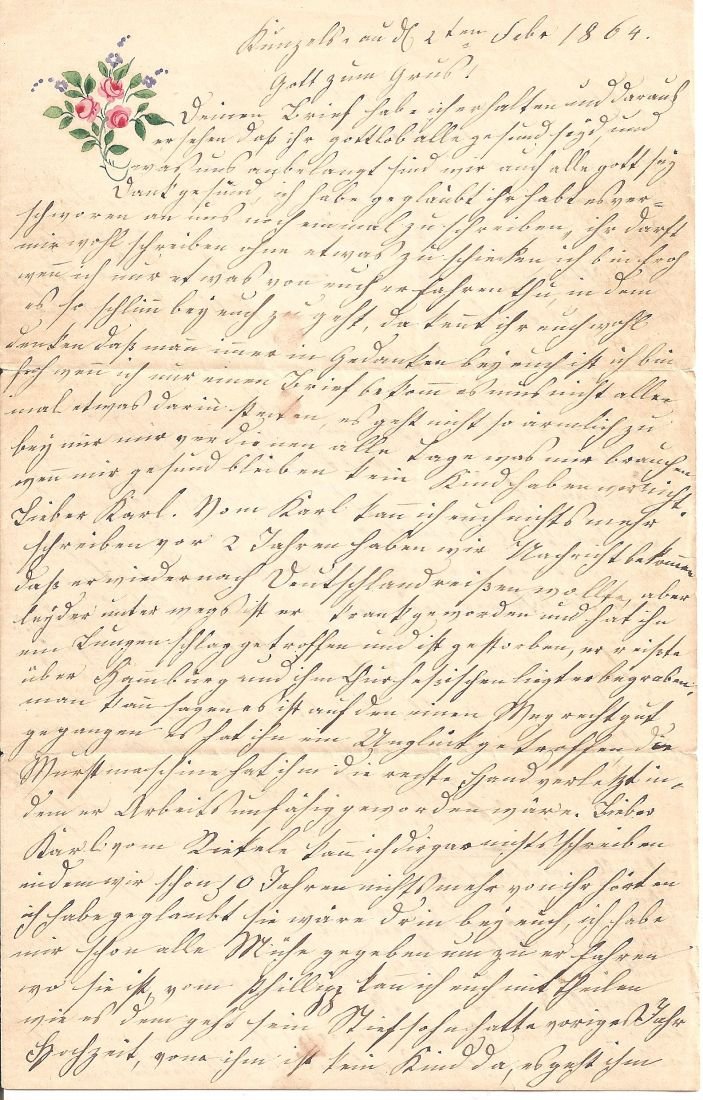 Künzelsau d 2ten Febr 1864.
Gott zum Grus!
Deinen Brief habe ich erhalten und daraus
ersehen daß ihr gottlob alle gesund seyd und
was uns anbelangt sind wir auch alle gott sey
Dank gesund, ich habe geglaubt ihr habt es ver=
schworen an uns noch einmal zu schreiben, ihr dürft
mir wohl schreiben ohne etwas zu schicken ich bin froh
wenn ich nur etwas von euch erfahren thu, in dem
es so schlim bey euch zu geht, da kennt ihr euch wohl
denken daß man immer in Gedanken bey euch ist ich bin
froh wen ich nur einen Brief bekomm es mus nicht alle=
mal etwas darin stecken, es geht nicht so ärmlich zu
bey mir mir verdienen alle Tage was mir brauchen
wenn mir gesund bleiben kein Kind haben wir nicht.
Lieber Karl. Vom Karl kann ich euch nichts mehr
schreiben vor 2 Jahren haben wir Nachricht bekommen
daß er wieder nach Deutschland reißen wollte, aber
leyder unter wegs ist er krank geworden und hat ihn
ein Lungenschlag getroffen und ist gestorben, er reißte
über Hamburg und im Churhessischen liegt er begraben,
man kann sagen es ist auf den einen Weg recht gut
gegangen es hat ihn ein Unglück getroffen die
Wurstmaschine hat ihm die rechte Hand verletzt in=
dem er Arbeitsunfähig geworden wäre. Lieber
Karl vom Rikele kann ich dir gar nichts schreiben
indem wir schon 10 Jahren nichts mehr von ihr hörten
ich habe geglaubt sie wäre drin bey euch, ich habe
mir schon alle Mühe gegeben um zu erfahren
wo sie ist, vom Phillipp kann ich euch mit theilen
wie es dem geht sein Stiefsohn hatte voriges Jahr
Hochzeit, von ihm ist kein Kind da, es geht ihm